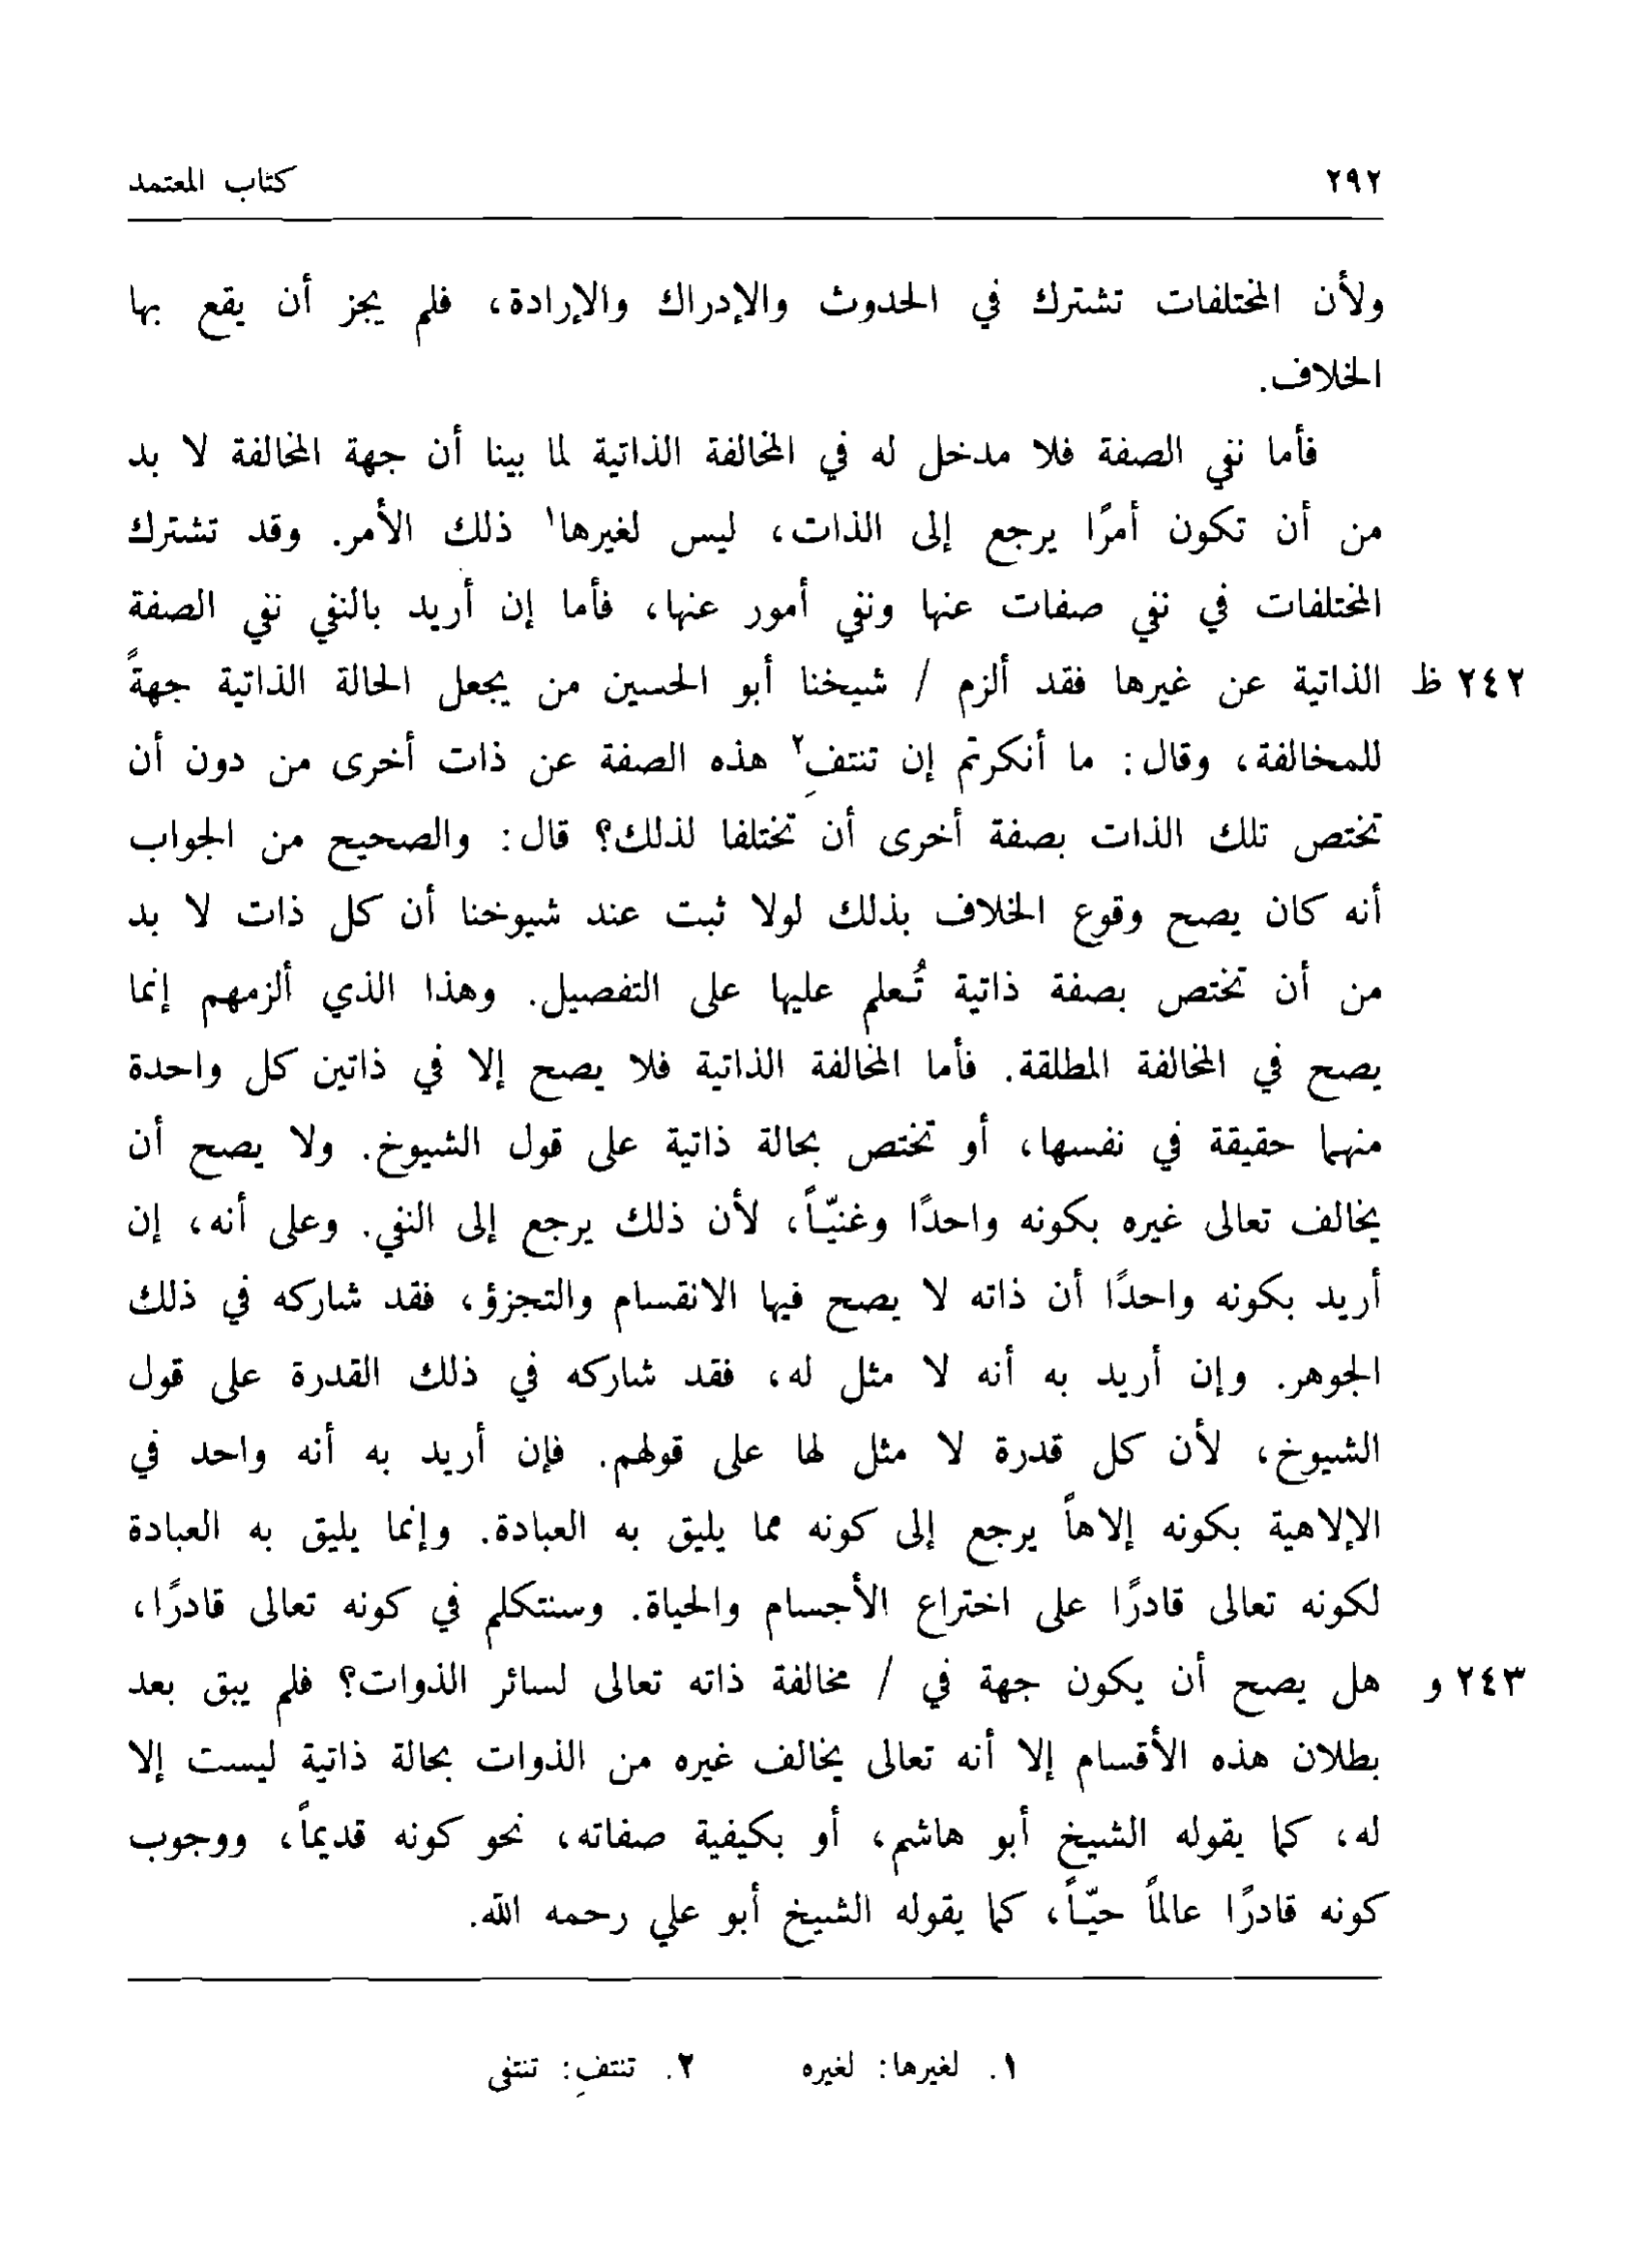 ٢٩٢ كتاب المعتمد
ولأن المختلفات تشترك في الحدوث والإدراك والإرادة، فلم يجز أن يقع بها
الخلاف.
فأما نفي الصفة فلا مدخل له في المخالفة الذاتية لما بينا أن جهة المخالفة لا بد
من أن تكون أمرًا يرجع إلى الذات، ليس لغيرها١ ذلك الأمر. وقد تشترك
المختلفات في نفي صفات عنها ونفي أمور عنها، فأما إن أريد بالنفي نفي الصفة
٢٤٢ ظ الذاتية عن غيرها فقد ألزم / شيخنا أبو الحسين من يجعل الحالة الذاتية جهةً
للمخالفة، وقال: ما أنكرتم إن تنتفِ٢ هذه الصفة عن ذات أخرى من دون أن
تختص تلك الذات بصفة أخرى أن تختلفا لذلك؟ قال: والصحيح من الجواب
أنه كان يصح وقوع الخلاف بذلك لولا ثبت عند شيوخنا أن كل ذات لا بد
من أن تختص بصفة ذاتية تُعلم عليها على التفصيل. وهذا الذي ألزمهم إنما
يصح في المخالفة المطلقة. فأما المخالفة الذاتية فلا يصح إلا في ذاتين كل واحدة
منهما حقيقة في نفسها، أو تختص بحالة ذاتية على قول الشيوخ. ولا يصح أن
يخالف تعالى غيره بكونه واحدًا وغنيّاً، لأن ذلك يرجع إلى النفي. وعلى أنه، إن
أريد بكونه واحدًا أن ذاته لا يصح فيها الانقسام والتجزؤ، فقد شاركه في ذلك
الجوهر. وإن أريد به أنه لا مثل له، فقد شاركه في ذلك القدرة على قول
الشيوخ، لأن كل قدرة لا مثل لها على قولهم. فإن أريد به أنه واحد في
الإلاهية بكونه إلاهاً يرجع إلى كونه مما يليق به العبادة. وإنما يليق به العبادة
لكونه تعالى قادرًا على اختراع الأجسام والحياة. وسنتكلم في كونه تعالى قادرًا،
٢٤٣ و هل يصح أن يكون جهة في / مخالفة ذاته تعالى لسائر الذوات؟ فلم يبق بعد
بطلان هذه الأقسام إلا أنه تعالى يخالف غيره من الذوات بحالة ذاتية ليست إلا
له، كما يقوله الشيخ أبو هاشم، أو بكيفية صفاته، نحو كونه قديماً، ووجوب
كونه قادرًا عالماً حيّاً، كما يقوله الشيخ أبو علي رحمه الله.
١. لغيرها: لغيره ٢. تنتفِ: تنتفى